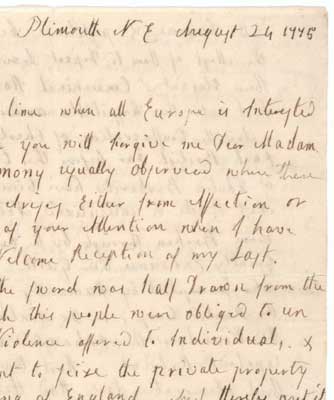 Plimouth N E August 24 1775
time when all Europe is Interested
you will forgive me Dear Madam
mony equally observed where there
urges Either from Affection or
of your Attention when I have
Welcome Reception of my Last.
the sword was half Drawn from the
this people were obliged to un
Violence offered to Individuals, &
nt to seize the private property
ng of England